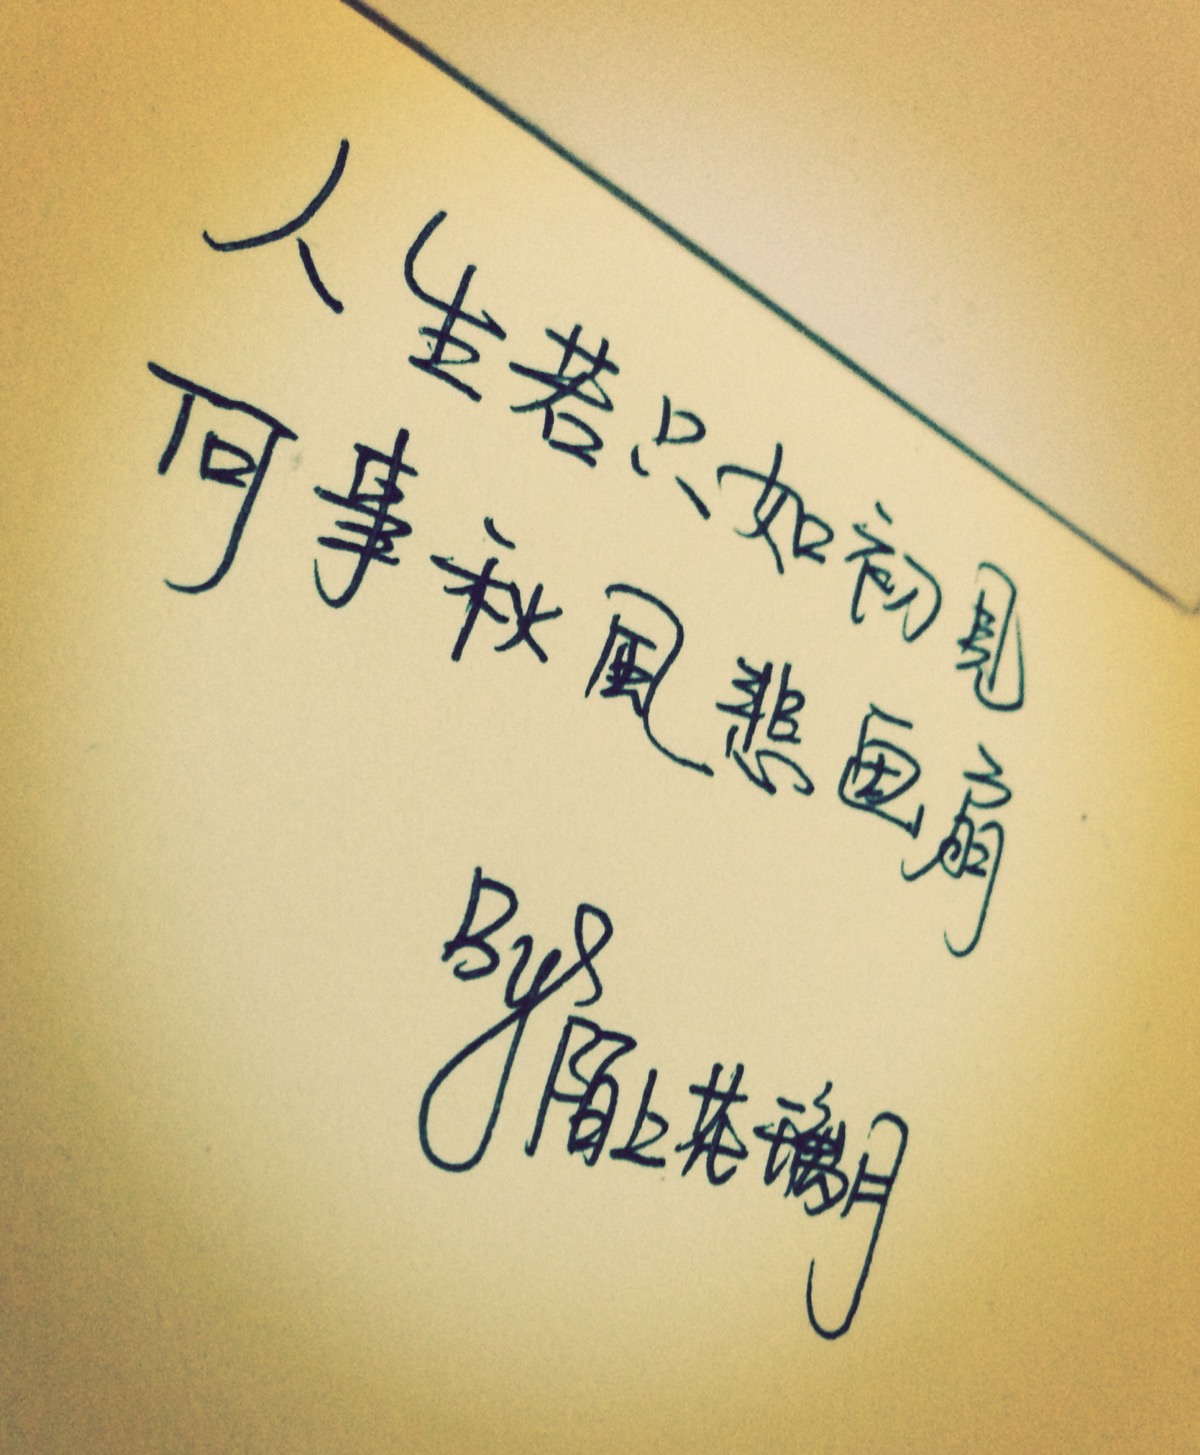 人生若只如初見
何事秋風悲画扇
By
陌上花璃月